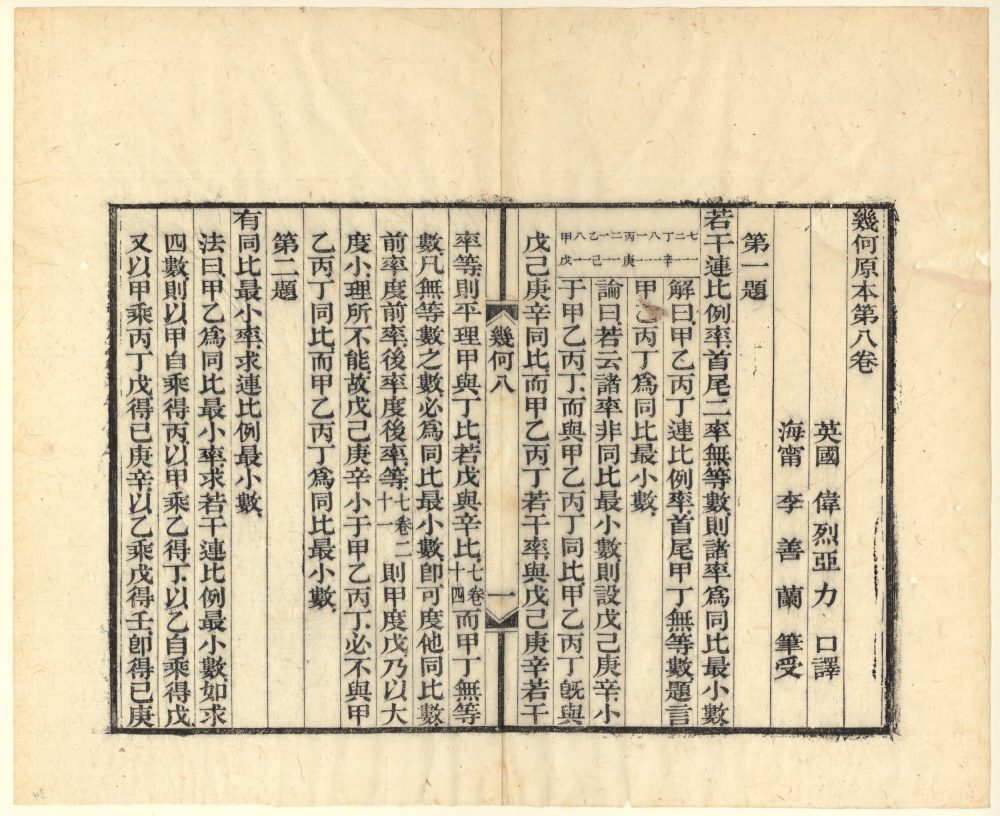 幾何原本第八卷
英國 偉烈亞力 口譯
海甯 李善蘭 筆受
第一題
若干連比例率首尾二率無等數則諸率為同比最小數
解曰甲乙丙丁連比例率首尾甲丁無等數題言
甲乙丙丁為同比最小數
甲八 乙一二 丙一八 丁二七
戊 己 庚 辛
論曰若云諸率非同比最小數則設戊己庚辛小
于甲乙丙丁而與甲乙丙丁同比甲乙丙丁旣與
戊己庚辛同比而甲乙丙丁若干率與戊己庚辛若干
幾何八
一
率等則平理甲與丁比若戊與辛比七卷十四而甲丁無等
數凡無等數之數必為同比最小數卽可度他同比數
前率度前率後率度後率等七卷二十一則甲度戊乃以大
度小理所不能故戊己庚辛小于甲乙丙丁必不與甲
乙丙丁同比而甲乙丙丁為同比最小數
第二題
有同比最小率求連比例最小數
法曰甲乙為同比最小率求若干連比例最小數如求
四數則以甲自乘得丙以甲乘乙得丁以乙自乘得戊
又以甲乘丙丁戊得己庚辛以乙乘戊得壬卽得己庚